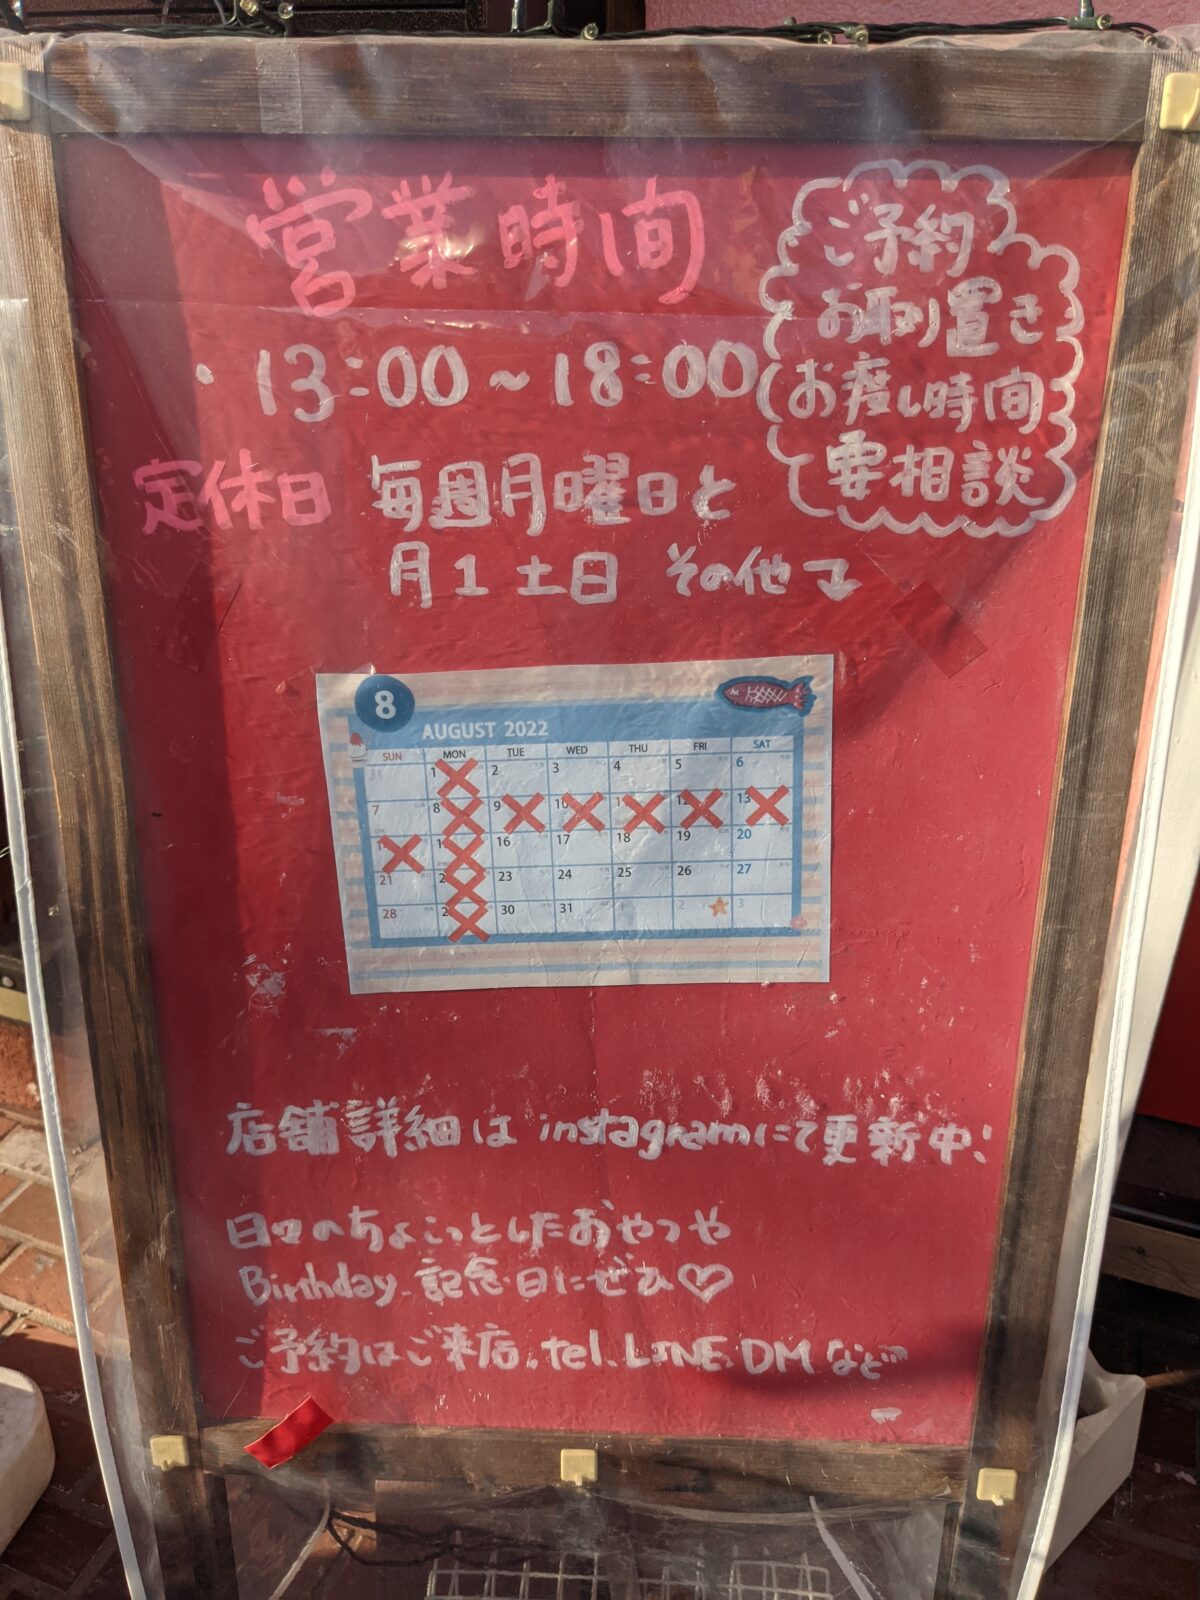 営業時間
13:00~18:00
ご予約
お取り置き
お渡し時間
要相談
定休日 毎週月曜日と
月1 土日 その他
8
AUGUST 2022
SUN MON TUE WED THU FRI SAT
31 1 2 3 4 5 6
7 8 9 10 11 12 13
16 17 18 19 20
21 23 24 25 26 27
28 30 31 2 3
店舗詳細は instagramにて更新中!
日々のちょこっとしたおやつや
Birthday.記念日にぜひ♡
ご予約はご来店.tel.LINE.DMなど